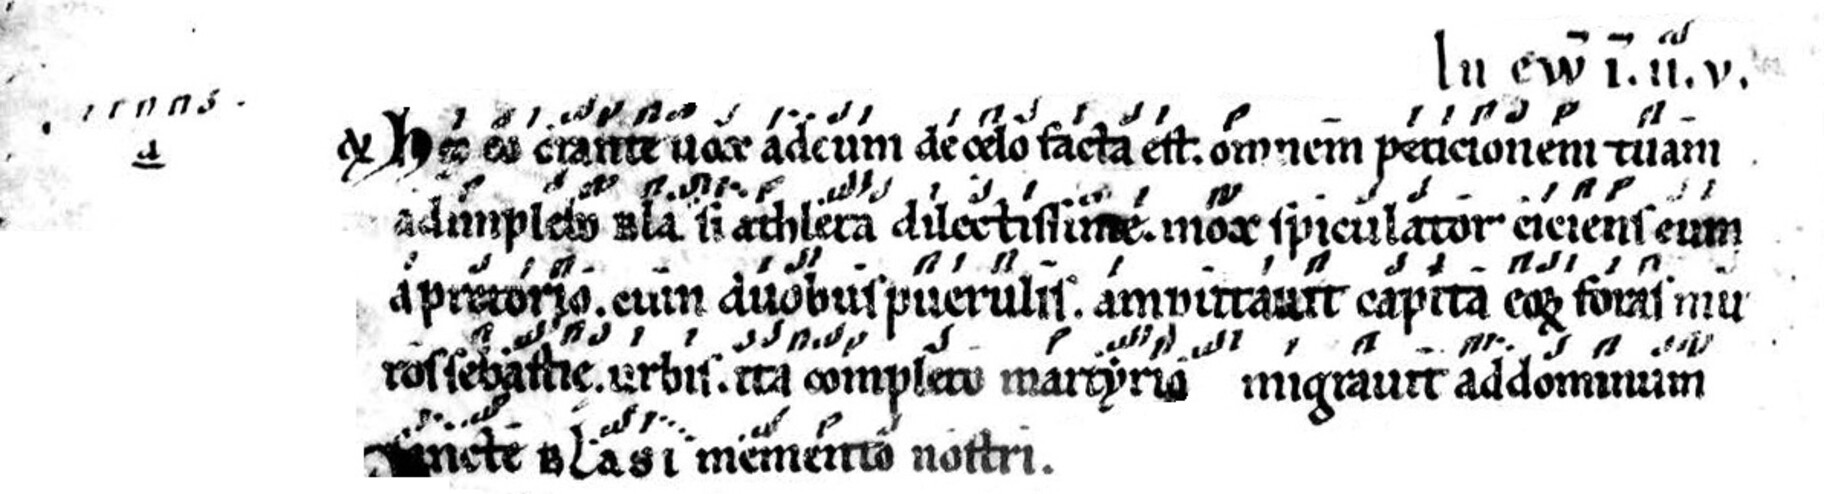 In ew̄ ī. ıı. v.
Hec eo orante uox ad eum de celo facta est. omnem peticionem tuam
adimplebo blasi athleta dilectissime. mox spiculator eiciens eum
a pretorio. cum duobus puerulis. amputauit capita eoꝝ foras mu
ros sebastie. urbis. ita completo martyrio migrauit ad dominum
Sancte blasi memento nostri.